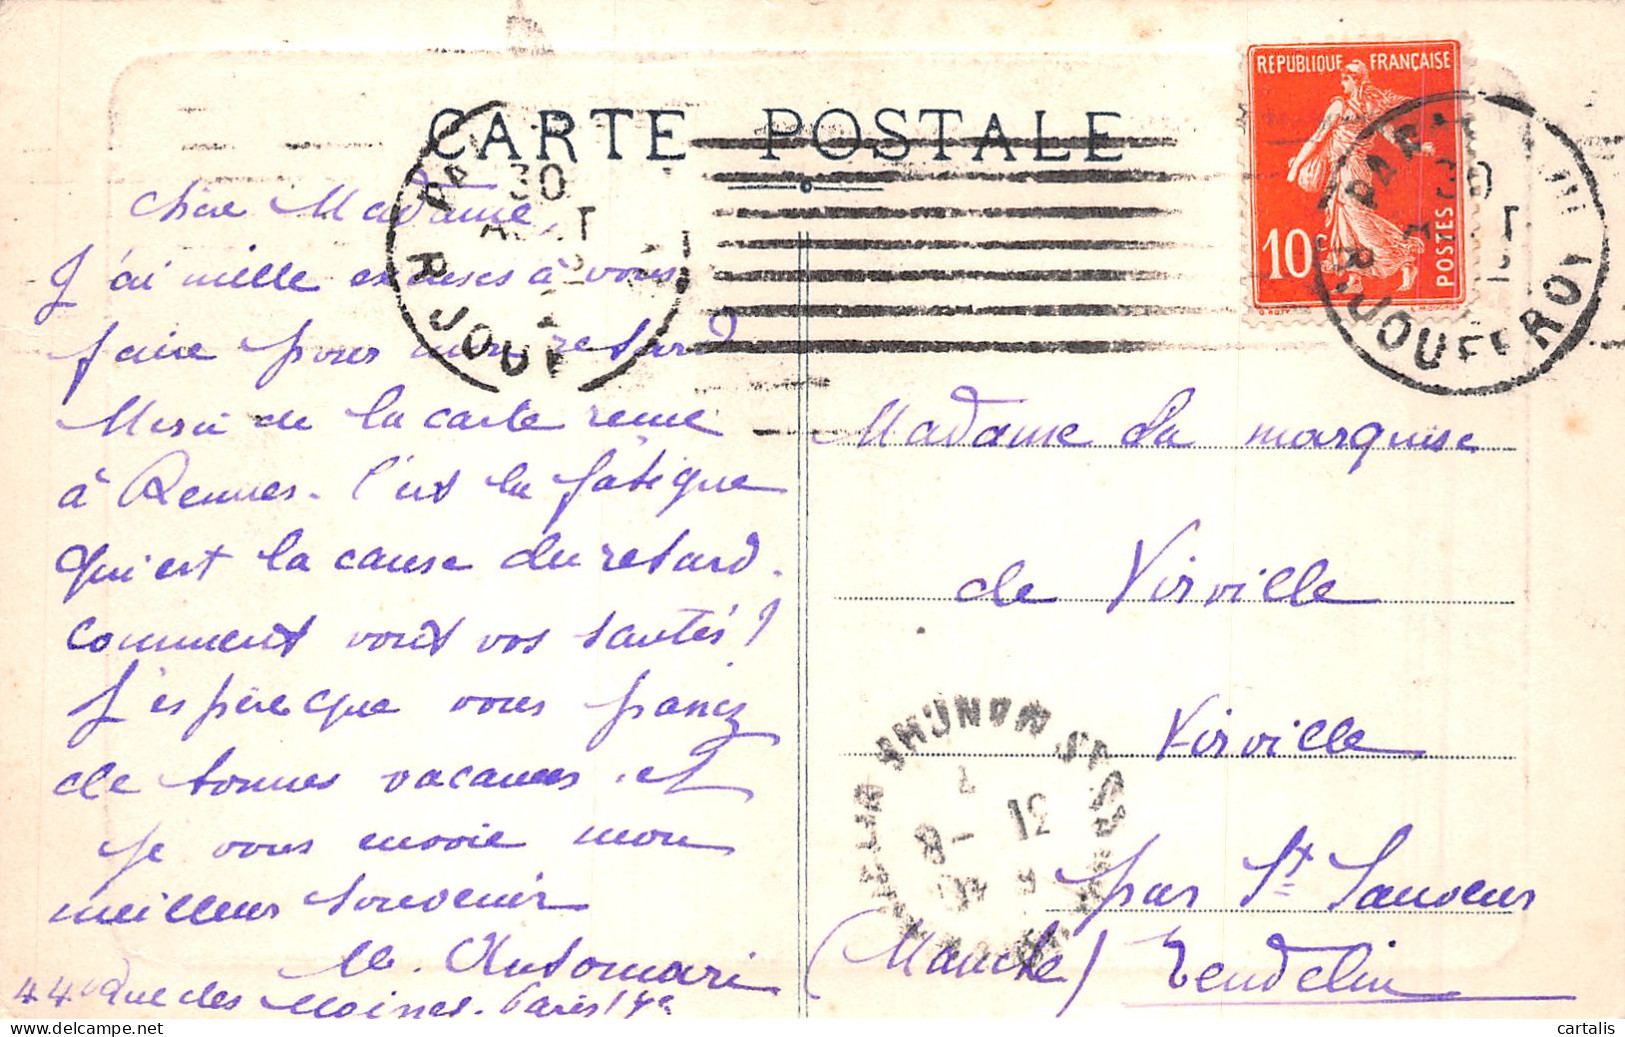 CARTE POSTALE
REPUBLIQUE FRANÇAISE
10 c
POSTES
PARIS
30
AOUT
R. JOUFFROY
PARIS
R. JOUFFROY
Chère Madame,
J'ai mille excuses à vous
faire pour mon retard
Merci de la carte reçue
à Rennes. C'est la fatigue
qui est la cause du retard.
Comment vont vos santés?
J'espère que vous prenez
de bonnes vacances et
je vous envoie mon
meilleur souvenir
M. Antomari
44 Rue des Moines. Paris 17e
Madame la marquise
de Virville
Virville
par St Sauveur
(Manche) Lendelin
MANCHE
8 - 12
cartalis